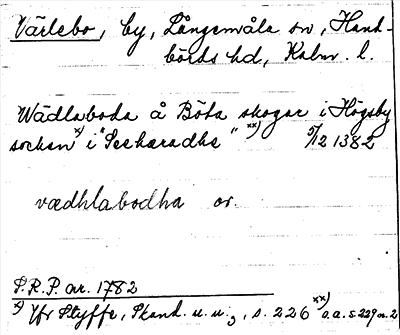 Värlebo, by, Långemåla sn, Hand-
börds hd, Kalm. l.
Wädlaboda å Böta skogar i Högsby
socken x) i "Seekæradhs" xx) 5/12 1382
vædhlabodha or.
S.R.P. nr. 1782
x) Jfr Styffe, Skand. u. u.3, s. 226 xx) a.a. s 229 n. 2